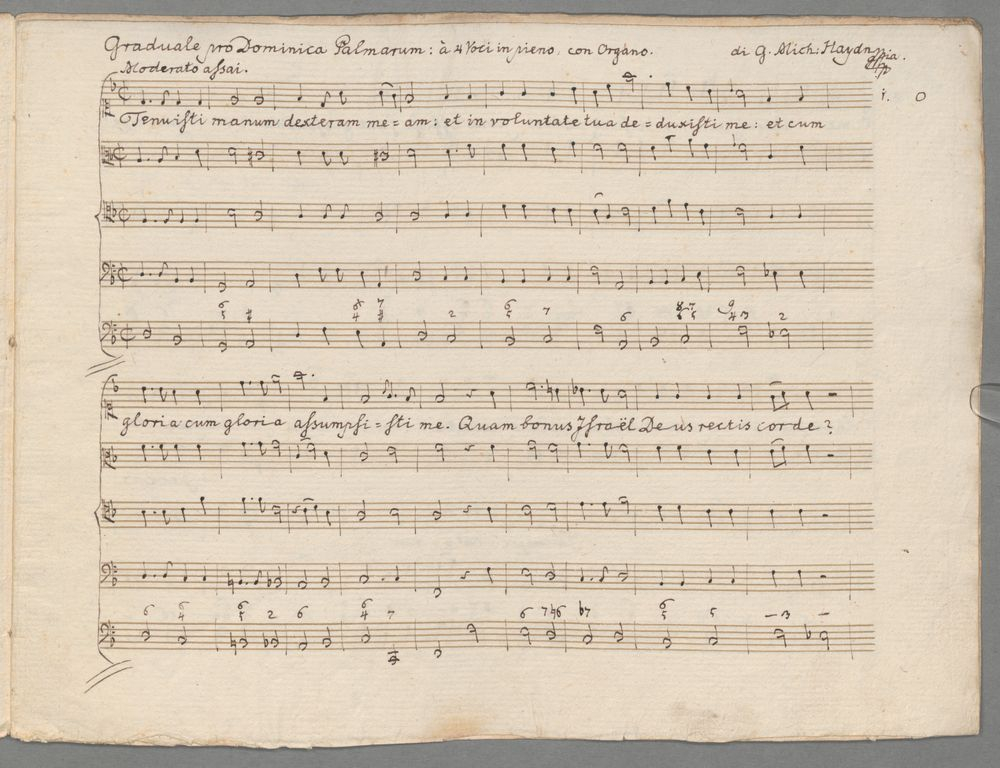 Graduale pro Dominica Palmarum: à 4 Voci in pieno, con Organo. di G. Mich: Haydn mpia.
Moderato aſsai.
1. 0
Tenuiſti manum dexteram me=am: et in voluntate tua de=duxiſti me: et cum
6 5 # 6 4 7 # 2 6 5 7 6 8 7 6 5 9 4 3 2
gloria cum gloria aſsumpſi=ſti me. Quam bonus Iſraël Deus rectis corde?
6 6 4 6 5 2 6 6 4 7 6 7 4 6 b7 6 5 5 – 3 –